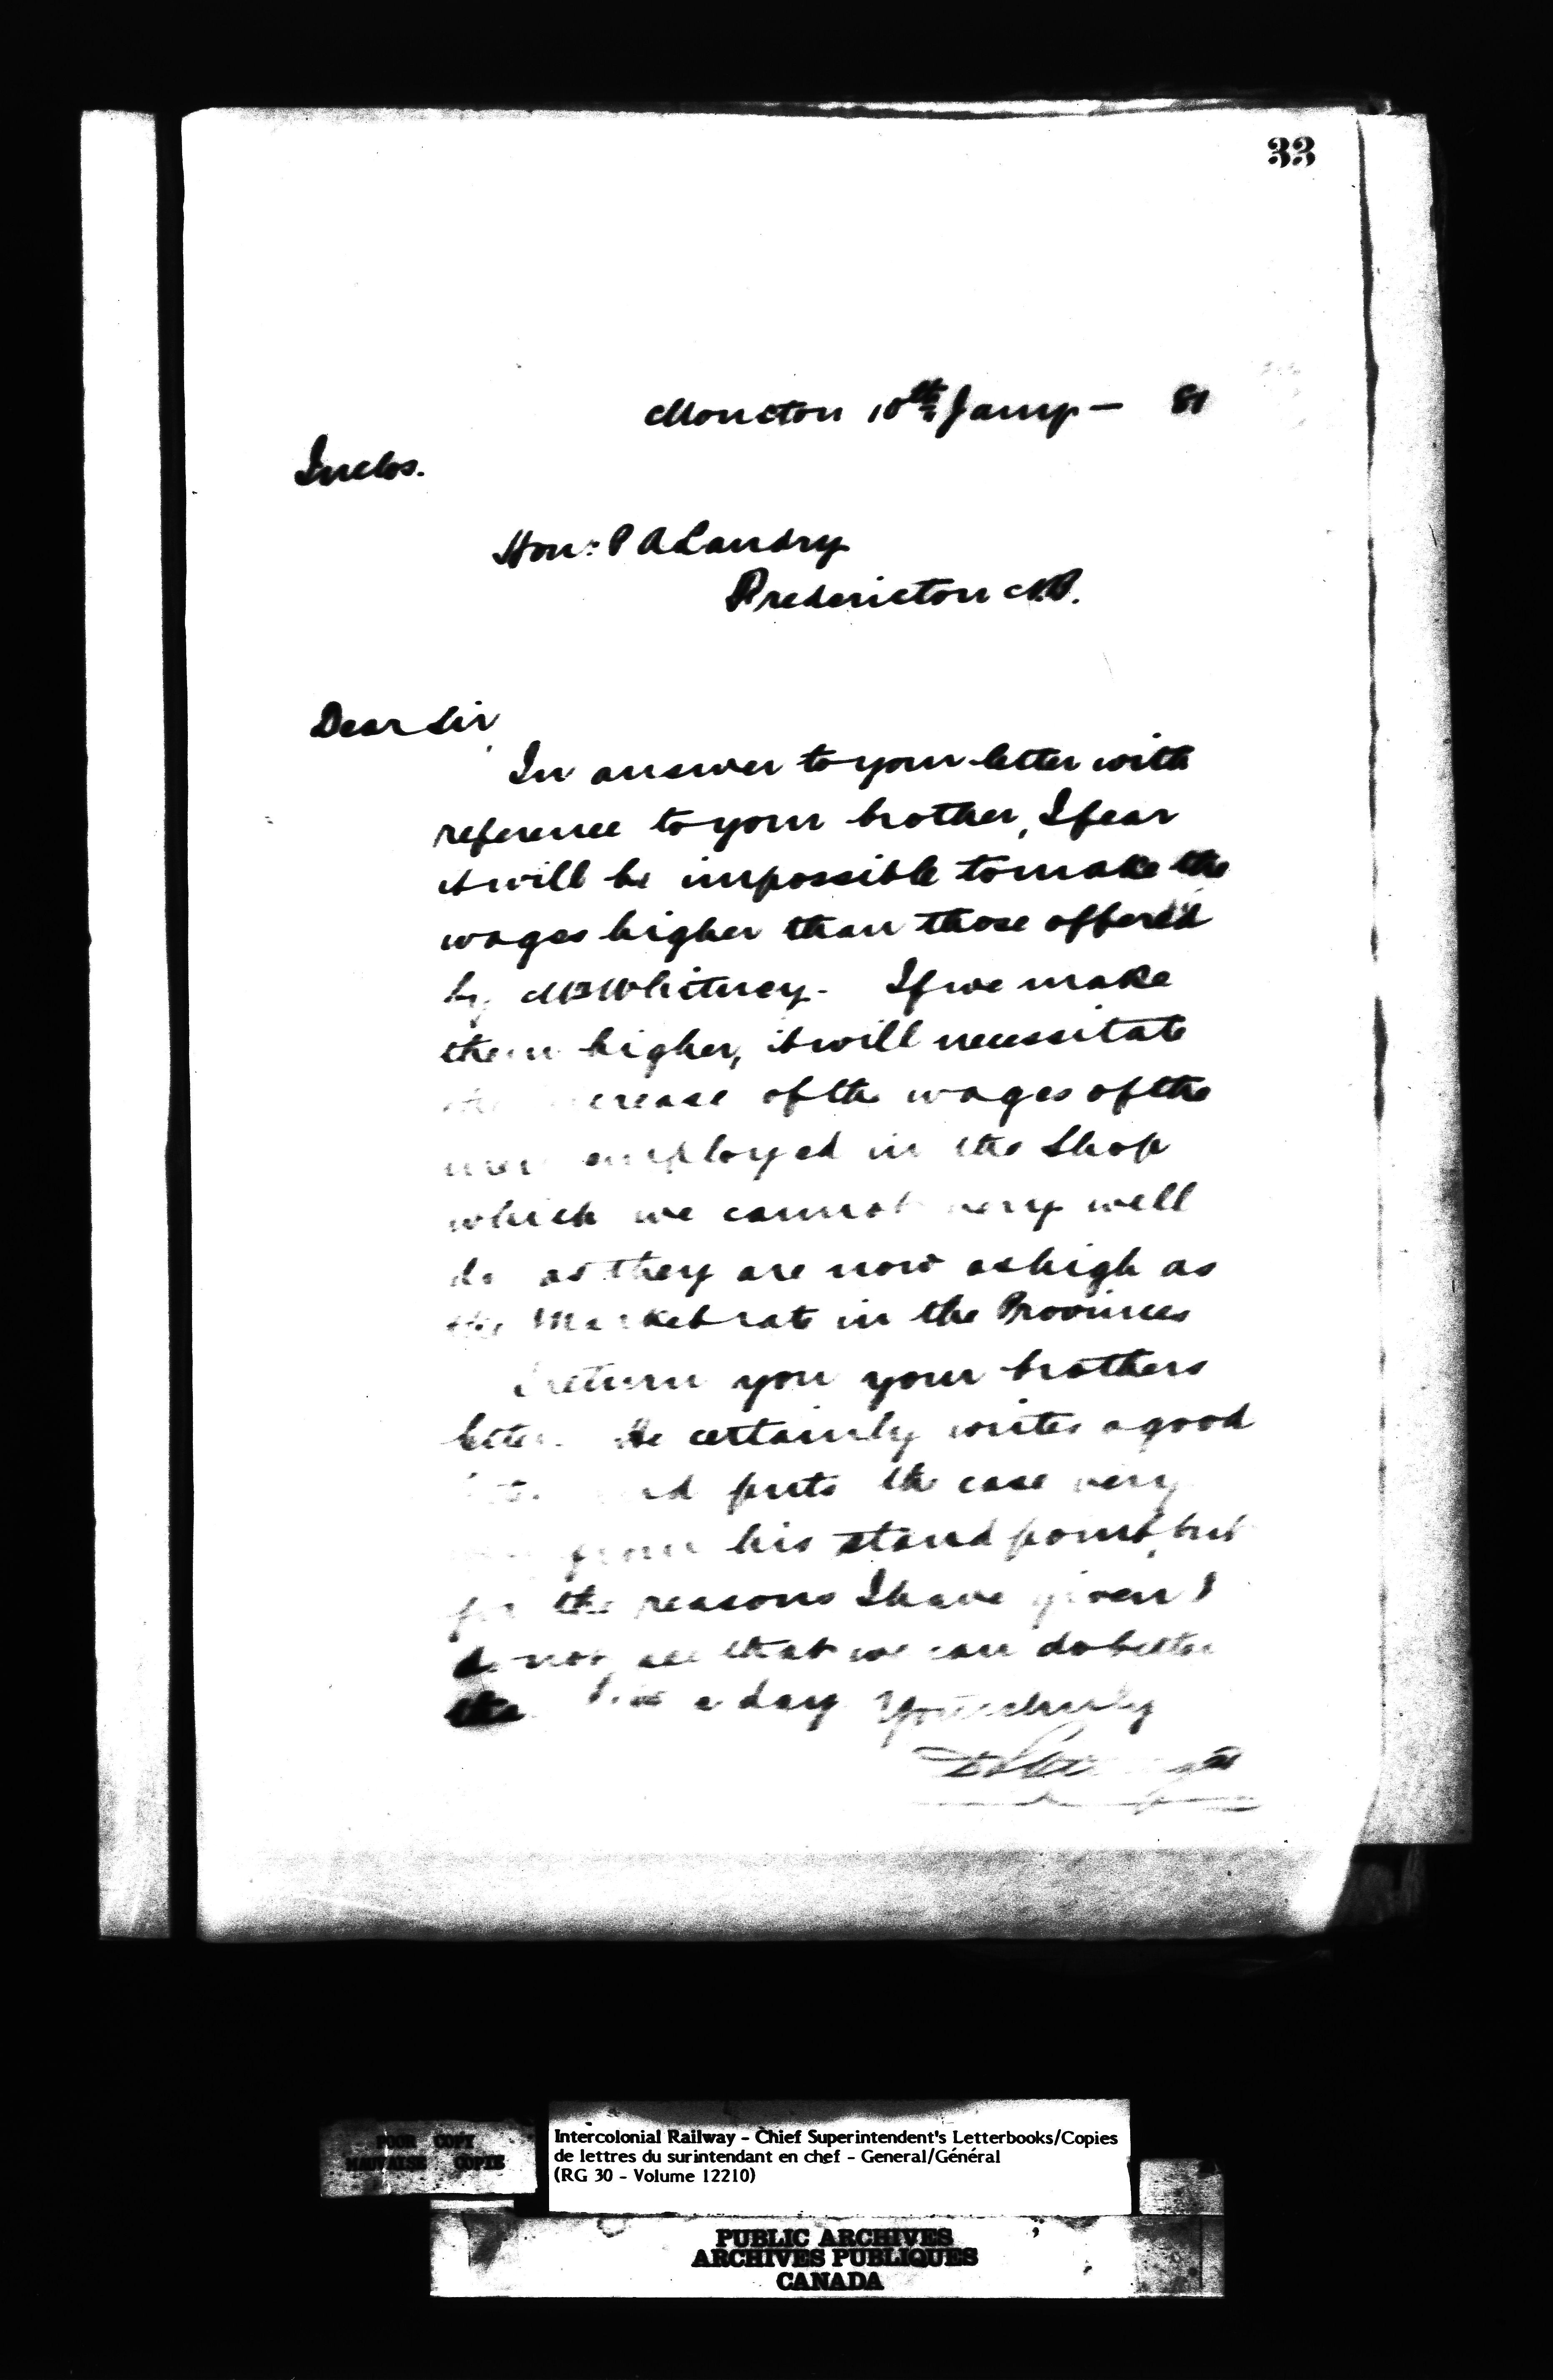 33
Moncton 10th Jany - 81
Inclos.
Hon: P A Landry
Fredericton N.B.
Dear Sir
In answer to your letter with
reference to your brother, I fear
it will be impossible to make the
wages higher than those offered
by Mr Whitney. If we make
them higher, it will necessitate
crease of the wages of the
men employed in the Shop
which we cannot very well
do as they are now as high as
the Market rate in the Provinces
I return you your brothers
letter. He certainly writes a good
and puts the case very
from his stand point, but
for the reasons I have given I
do not see that we can do better
a day Yours truly
POOR COPY
MAUVAISE COPIE
Intercolonial Railway - Chief Superintendent's Letterbooks/Copies
de lettres du surintendant en chef - General/Général
(RG 30 - Volume 12210)
PUBLIC ARCHIVES
ARCHIVES PUBLIQUES
CANADA